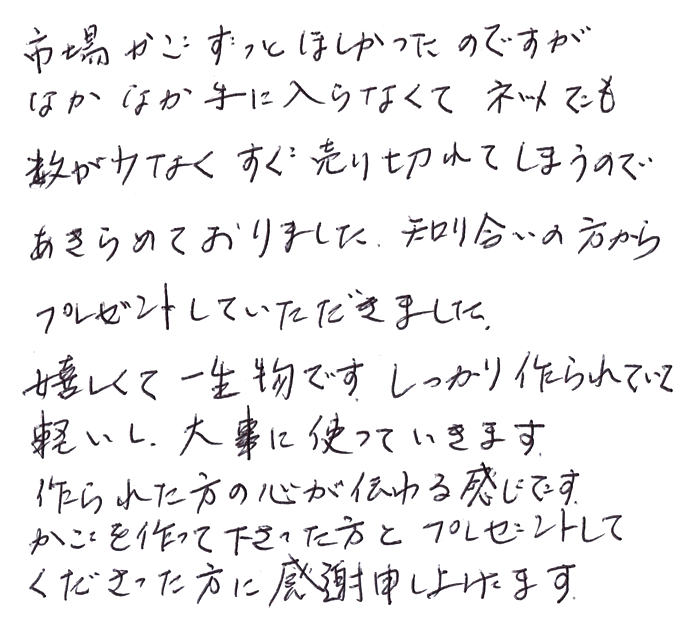 市場かごずっとほしかったのですが
なかなか手に入らなくて ネットでも
数が少なく すぐ売り切れてしまうので
あきらめておりました。知り合いの方から
プレゼントしていただきました。
嬉しくて 一生物です。しっかり作られていて
軽いし、大事に使っていきます。
作られた方の心が伝わる感じです。
かごを作って下さった方と プレゼントして
くださった方に感謝申し上げます。